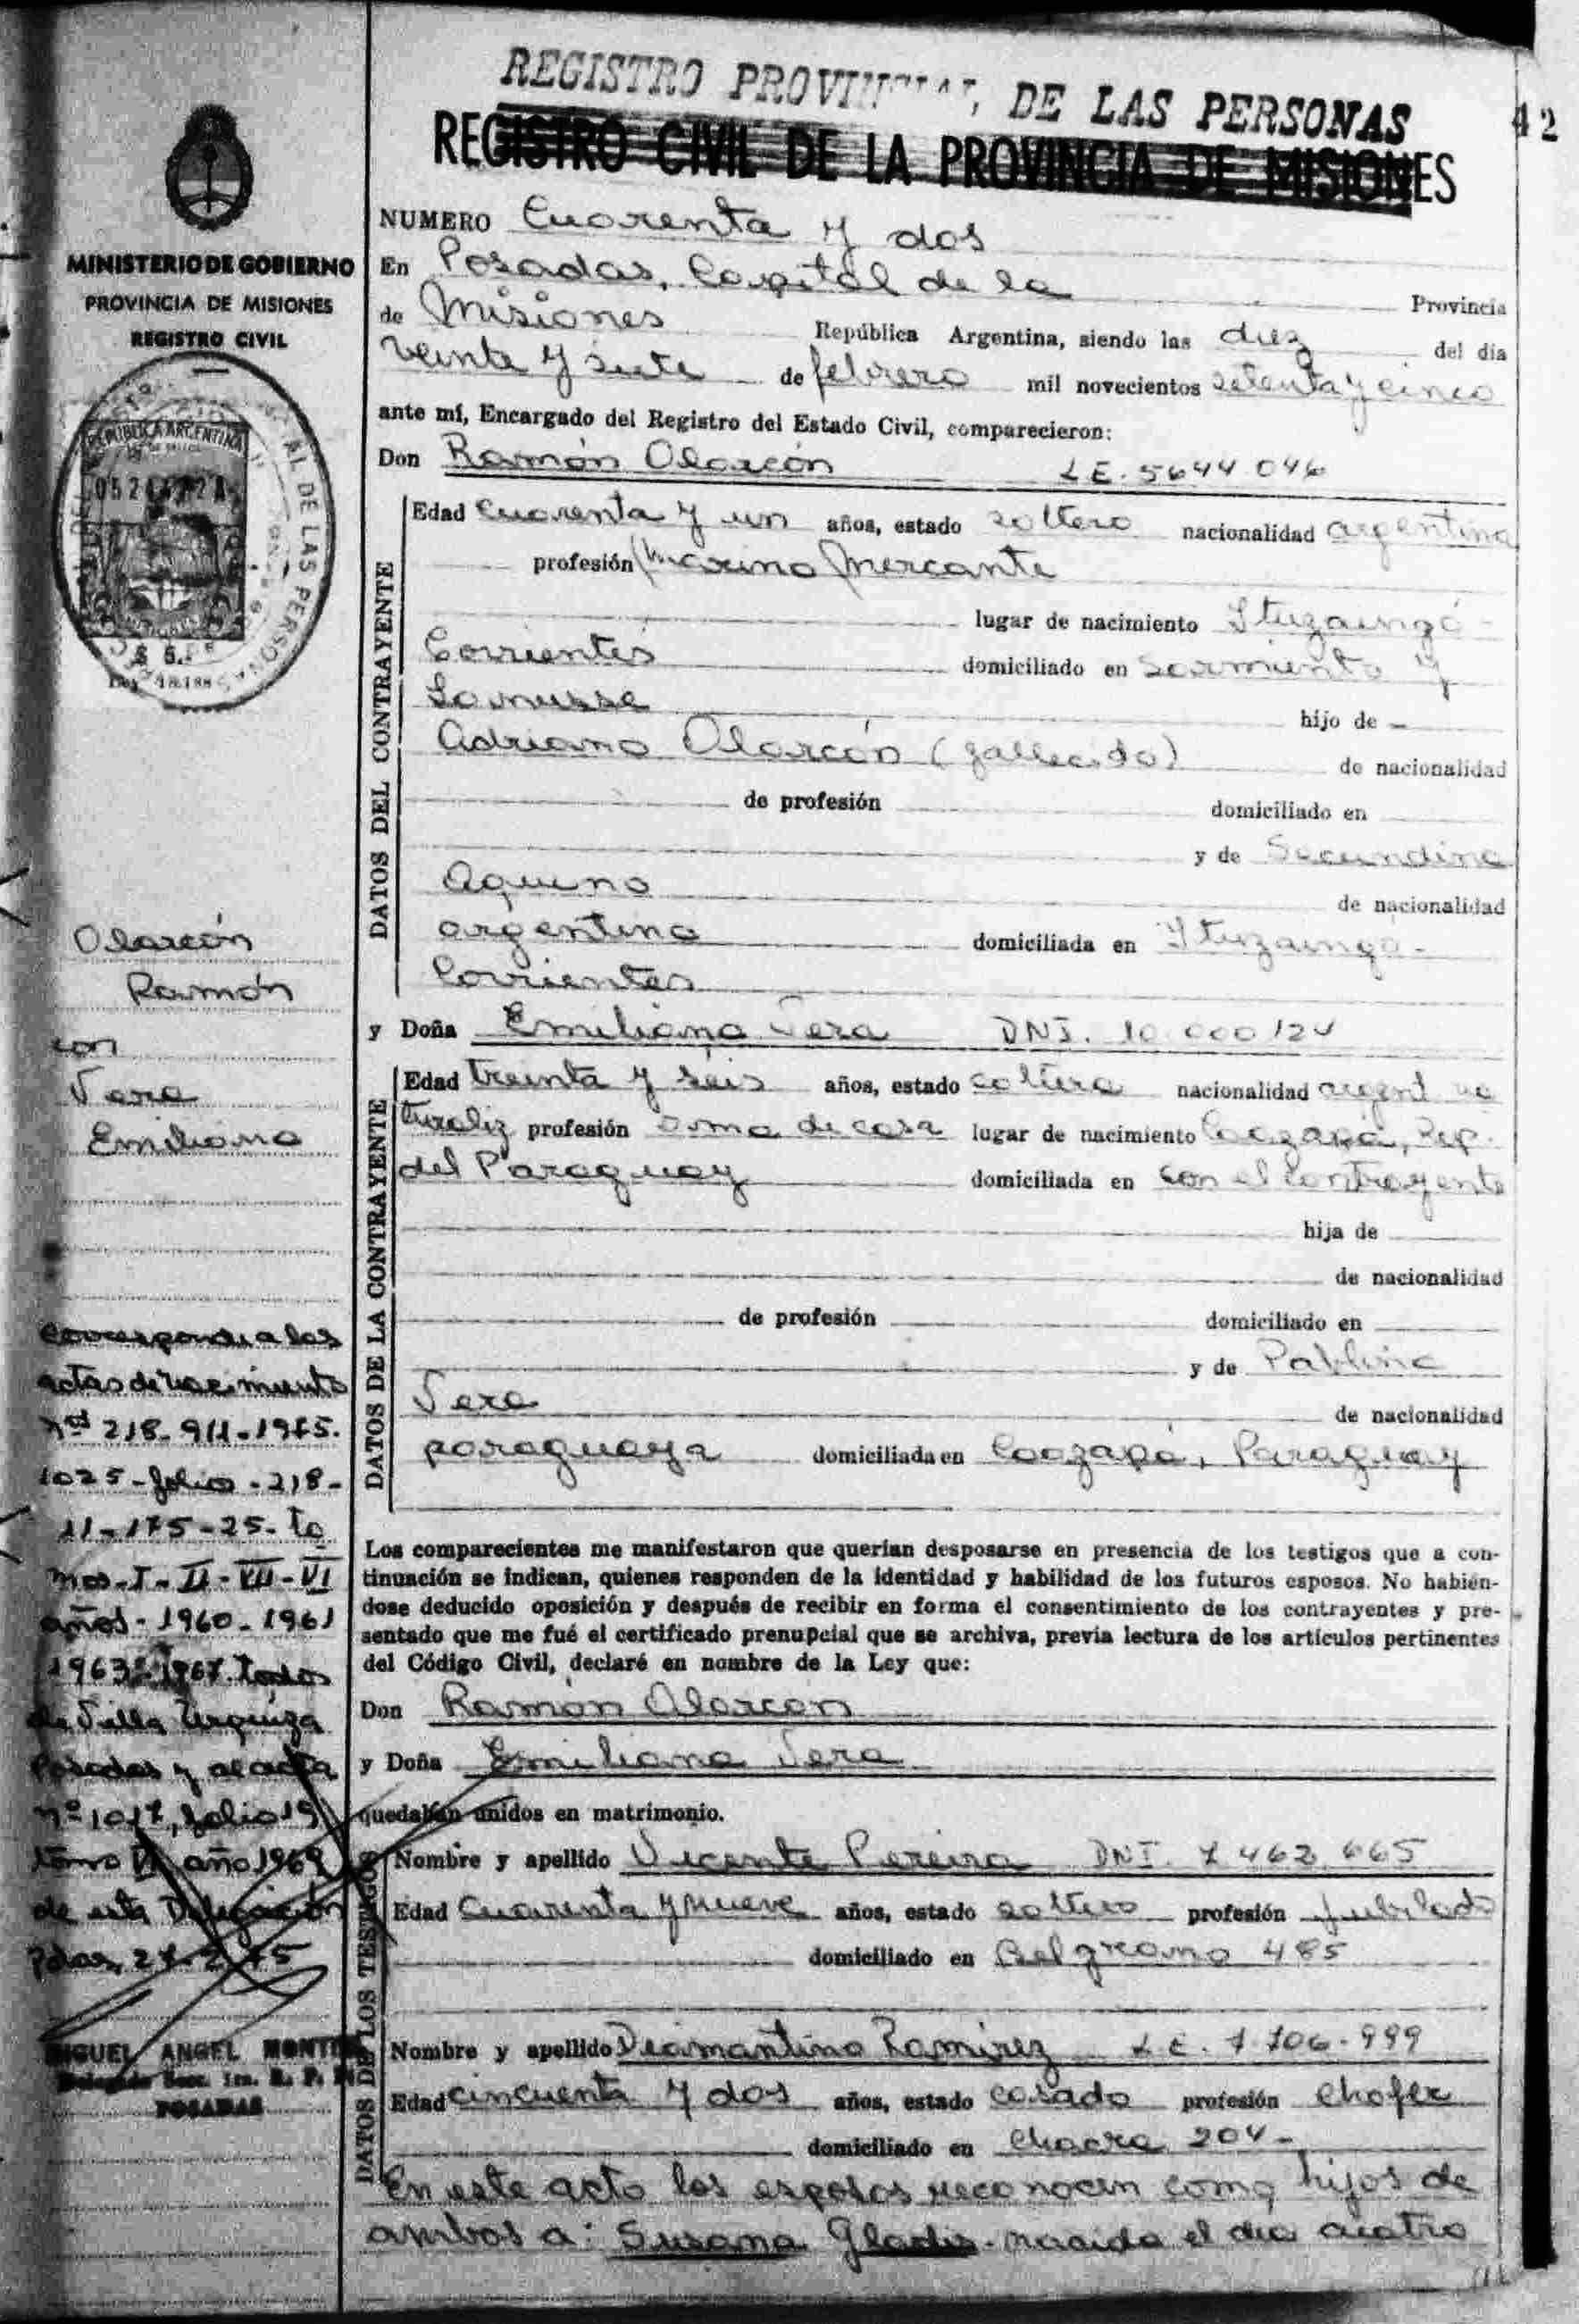 REGISTRO PROVINCIAL DE LAS PERSONAS
42
REGISTRO CIVIL DE LA PROVINCIA DE MISIONES
NUMERO Cuarenta y dos
En Posadas, Capital de la Provincia
de Misiones República Argentina, siendo las diez del día
veinte y siete de febrero mil novecientos setenta y cinco
ante mí, Encargado del Registro del Estado Civil, comparecieron:
Don Ramón Alarcón L.E. 5644 046
DATOS DEL CONTRAYENTE
Edad Cuarenta y un años, estado soltero nacionalidad argentina
profesión Marino Mercante
lugar de nacimiento Ituzaingó -
Corrientes domiciliado en Sarmiento y
Lanusse hijo de -
Adriano Alarcón (fallecido) de nacionalidad
de profesión domiciliado en
y de Secundina
Aquino de nacionalidad
argentina domiciliada en Ituzaingó -
Corrientes
y Doña Emiliana Vera DNI. 10.000
DATOS DE LA CONTRAYENTE
Edad treinta y seis años, estado soltera nacionalidad argent na
turaliz profesión ama de casa lugar de nacimiento Caazapá, Rep.
del Paraguay domiciliada en con el contrayente
hija de
de nacionalidad
de profesión domiciliado en
y de Pablina
Vera de nacionalidad
paraguaya domiciliada en Caazapá, Paraguay
Los comparecientes me manifestaron que querían desposarse en presencia de los testigos que a con-
tinuación se indican, quienes responden de la identidad y habilidad de los futuros esposos. No habién-
dose deducido oposición y después de recibir en forma el consentimiento de los contrayentes y pre-
sentado que me fué el certificado prenupcial que se archiva, previa lectura de los artículos pertinentes
del Código Civil, declaré en nombre de la Ley que:
Don Ramón Alarcon
y Doña Emiliana Vera
quedaban unidos en matrimonio.
DATOS DE LOS TESTIGOS
Nombre y apellido Vicente Pereira DNI. 7 462 665
Edad Cuarenta y nueve años, estado soltero profesión jubilado
domiciliado en Belgrano 485
Nombre y apellido Diamantino Ramirez L.E. 1.706.999
Edad cincuenta y dos años, estado casado profesión Chofer
domiciliado en Chacra 204 -
En este acto los esposos reconocen como hijos de
ambos a: Susana Gladis - nacida el día cuatro
MINISTERIO DE GOBIERNO
PROVINCIA DE MISIONES
REGISTRO CIVIL
REPUBLICA ARGENTINA
AL DE LAS PERSONAS
$ 5.
Alarcón
Ramón
con
Vera
Emiliana
Corresponde a las
actas de nacimiento
nos 218 - 911 - 1975.
1025 - folios - 218 -
11 - 175 - 25 - to
mos - I - II - VII - VI
años - 1960 - 1961
1963 - 1967 todos
de Villa Urquiza
Posadas y al acta
nº 1017, folio 19
tomo VI año 1969
de esta Delegación
Pdas, 27-2-75
MIGUEL ANGEL MONTI
Delegado Secc. 1ra. R. P. P.
POSADAS